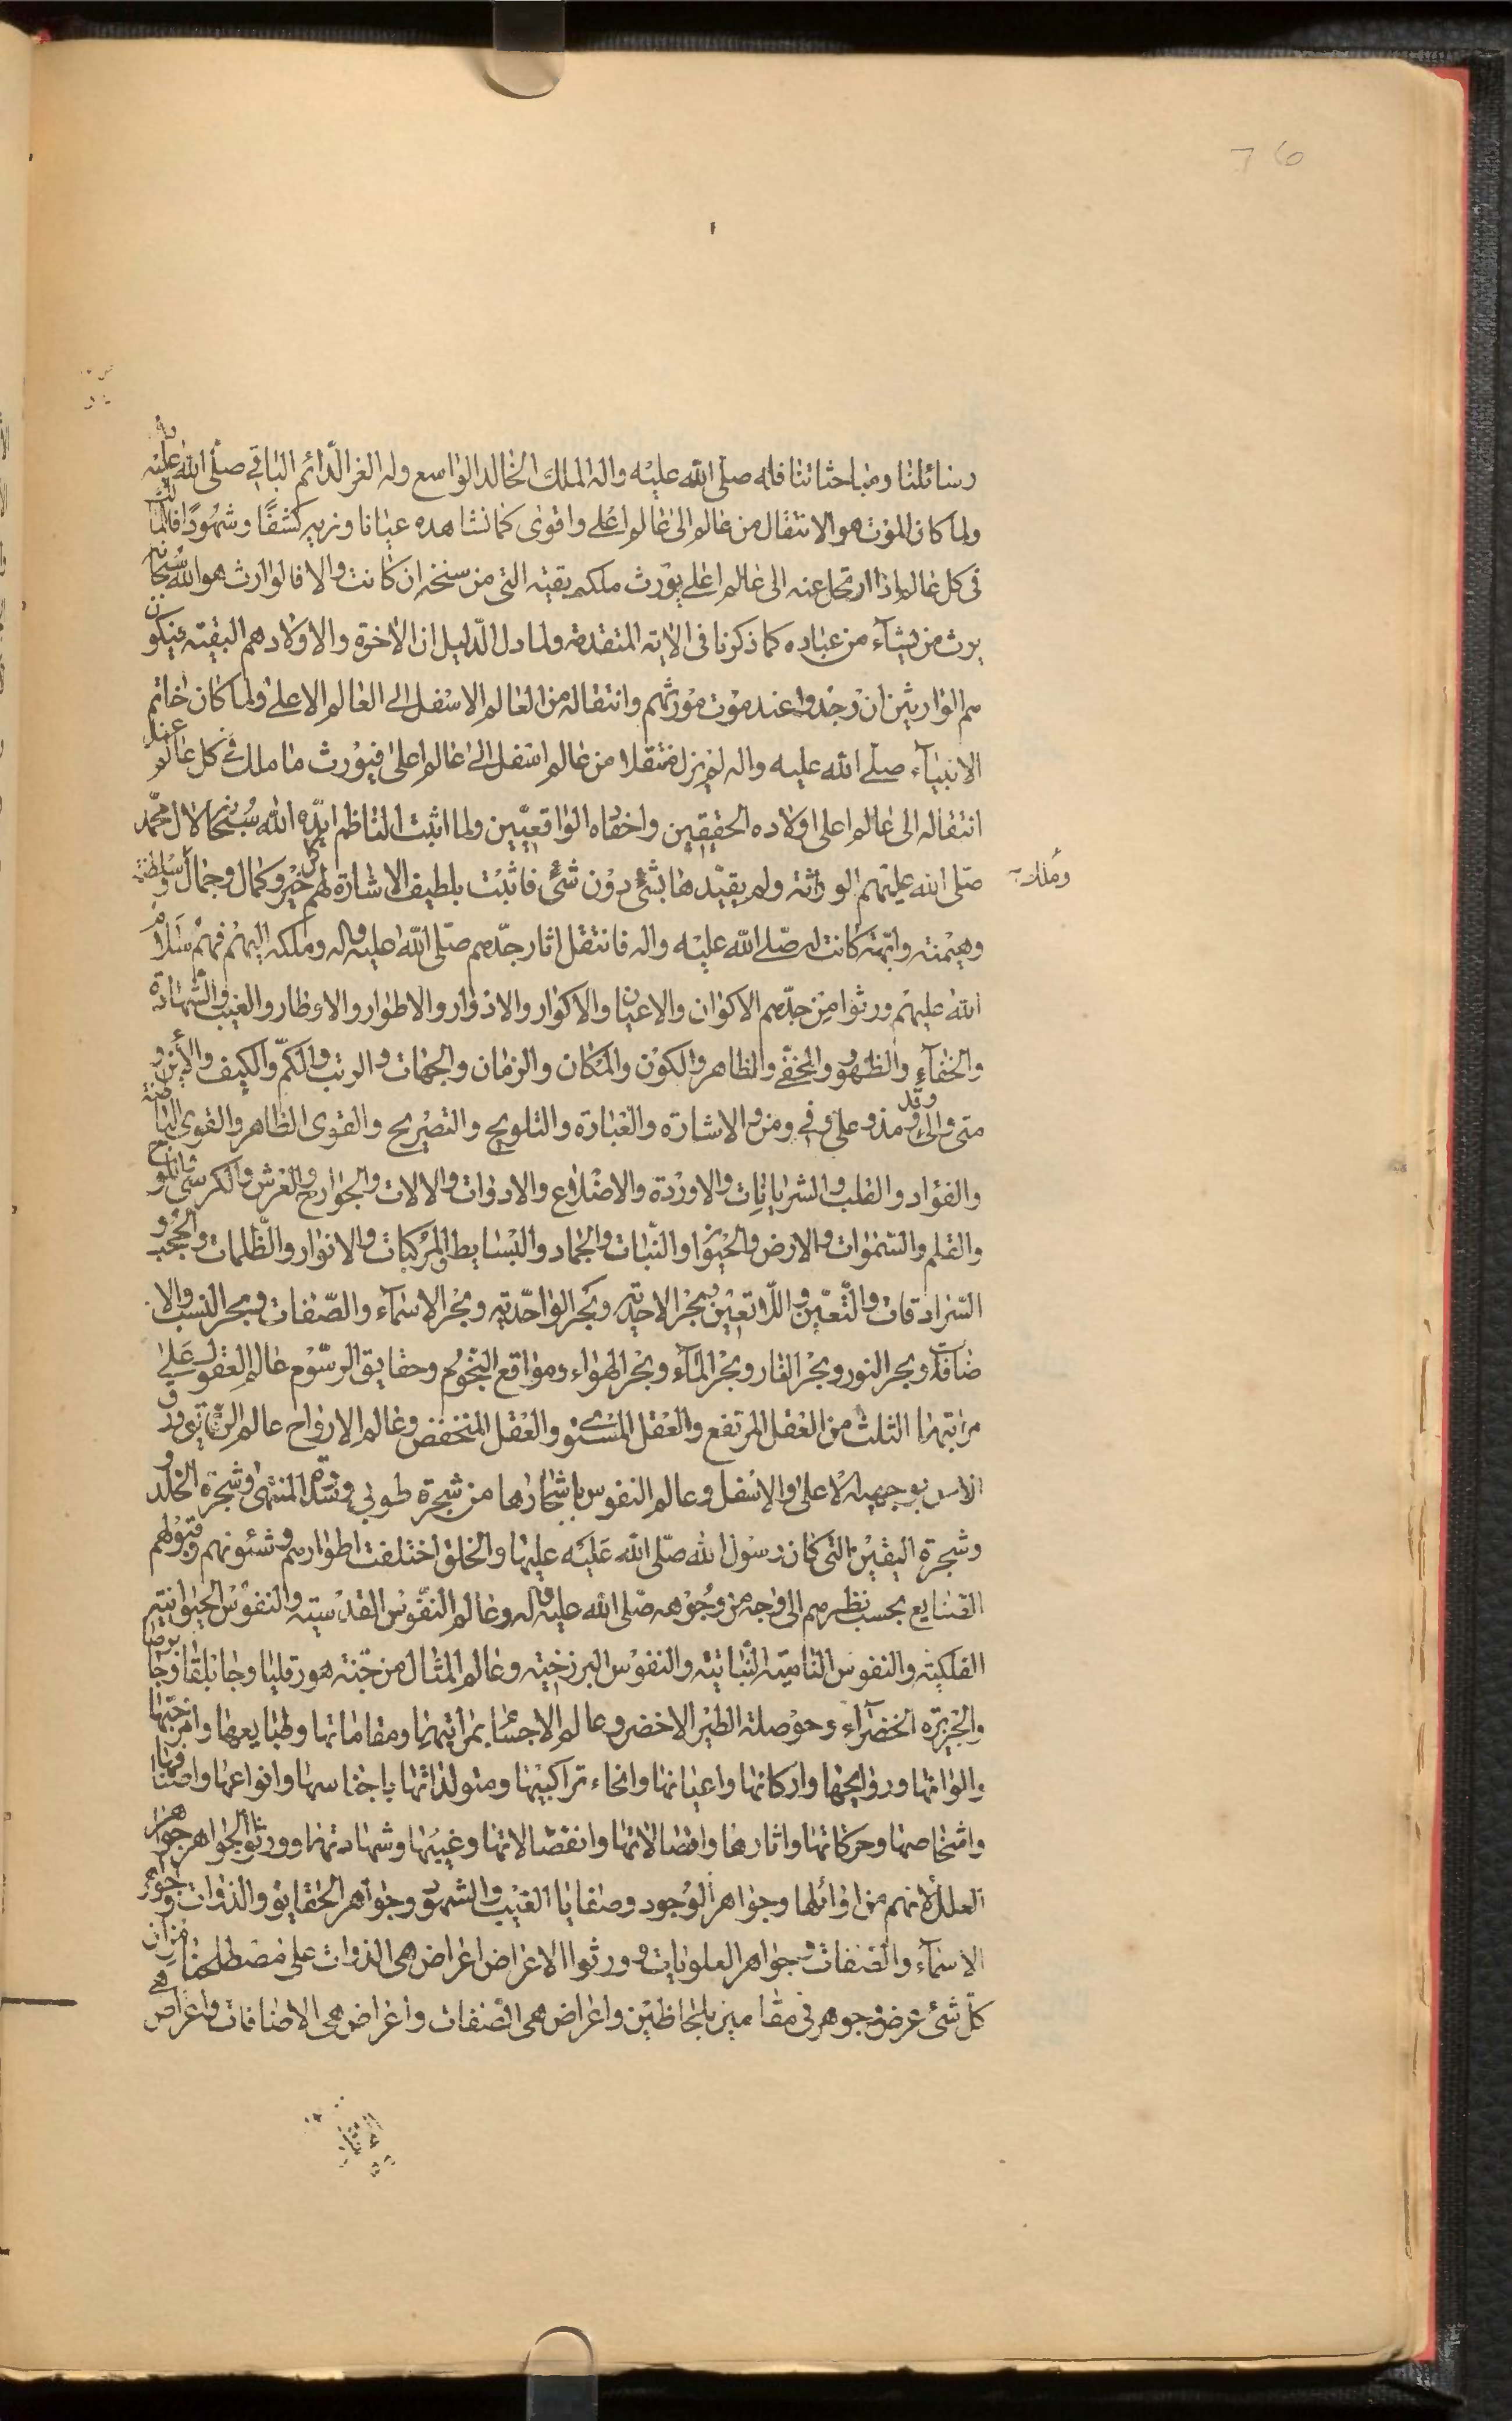 76
رسائلنا ومباحثاتنا فله صلى الله عليه واله الملك الخالد الواسع وله العز الدائم الباقي صلى الله عليه واله
ولما كان الموت هو الانتقال من عالم الى عالم اعلى واقوى كما نشاهده عيانا ونريه كشفًا وشهودًا فالمالك
في كل عالم اذا ارتحل عنه الى عالم اعلى يورث ملكه بقيته التي من سنخه ان كانت والا فالوارث هو الله سبحانه
يرث من يشآء من عباده كما ذكرنا في الاية المتقدمة ولما دل الدليل ان الاخوة والاولاد هم البقيته فيكون
هم الوارثين ان وجدوا عند موت مورثهم وانتقاله من العالم الاسفل الى العالم الاعلى ولما كان خاتم
الانبيآء صلى الله عليه واله لم يزل منتقلا من عالم اسفل الى عالم اعلى فيورث ما ملك في كل عالم عند
انتقاله الى عالم اعلى اولاده الحقيقين واخفاه الواقعيين ولما اثبت الناظم ايده الله سبحانه لال محمد
صلى الله عليهم الوراثة ولم يقيدها بشئ دون شئ فاثبت بلطيف الاشارة لهم كل خير وكمال وجمال وسلطنة
وهيمنة وابهة كانت له صلى الله عليه واله فانتقل اثار جدهم صلى الله عليه واله وملكه اليهم فهم سلام
الله عليهم ورثوا من جدهم الاكوان والاعيان والاكوار والادوار والاطوار والاوطار والغيب والشهادة
والخفآء والظهور والمخفي والظاهر والكون والمكان والزمان والجهات والرتب والكم والكيف والاين و
متى والى وقد ومذ وعلى وفي ومن والاشارة والعبارة والتلويح والتصريح والقوى الظاهر والقوى الباطنة
والفؤاد والقلب والشريانات والاوردة والاضلاع والادوات والالات والجوارح والعرش والكرسي واللوح
والقلم والسموات والارض والحيوان والنبات والجماد والبسايط والمركبات والانوار والظلمات والحجب و
السرادقات والتعين واللاتعين وبحر الاحدية وبحر الواحدية وبحر الاسمآء والصفات وبحر النسب والا
ضافات وبحر النور وبحر النار وبحر المآء وبحر الهواء ومواقع النجوم وحقايق الرسوم عالم العقول على
مراتبها الثلث من العقل المرتفع والعقل المستوي والعقل المنخفض وعالم الارواح عالم الرقايق وورق
الاس بوجهيه الاعلى والاسفل وعالم النفوس باشجارها من شجرة طوبى وسدرة المنتهى وشجرة الخلد و
وشجرة اليقين التي كان رسول الله صلى الله عليه عليها والخلق اختلفت اطوارهم وشئونهم وقبولهم
الصنايع بحسب نظرهم الى وجه من وجوهه صلى الله عليه واله وعالم النفوس القدسيته والنفوس الحيوانيته
الفلكيته والنفوس الناميته النباتيته والنفوس البرزخيته وعالم المثال من جنة هورقليا وجابلقا وجابرصا
والجزيرة الخضرآء وحوصلة الطير الاخضر وعالم الاجسام بمراتبها ومقاماتها وطبايعها وامزجتها
والوانها وروايحها واركانها واعيانها وانحاء تراكيبها ومتولداتها باجناسها وانواعها واصنافها
واشخاصها وحركاتها واثارها واتصالاتها وانفصالاتها وغيبها وشهادتها وورثوا الجواهر جواهر
العلل لانهم من اوائلها وجواهر الوجود وصفايا الغيب والشهود وجواهر الحقايق والذوات وجواهر
الاسمآء والصفات وجواهر العلويات وورثوا الاعراض اعراض هي الذوات على مصطلحنا من ان
كل شئ عرض وجوهر في مقامين بلحاظين واعراض هي الصفات واعراض هي الاضافات واعراض هي